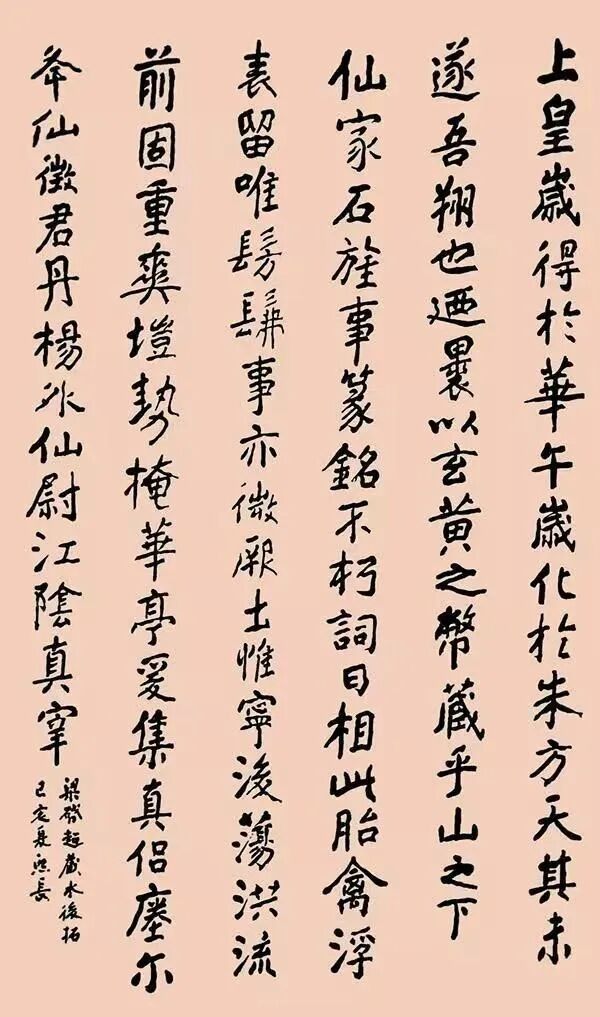 上皇歲得於華午歲化於朱方天其未
遂吾翔也迺裹以玄黄之幣蔵乎山之下
仙家石旌事篆銘不朽詞曰相此胎禽浮
表留唯髣髴事亦微厥土惟寧浚蕩洪流
前固重爽塏勢掩華亭爰集真侣瘞尔
夅仙徵君丹楊外仙尉江陰真宰
梁啓超藏水後拓
己亥夏長